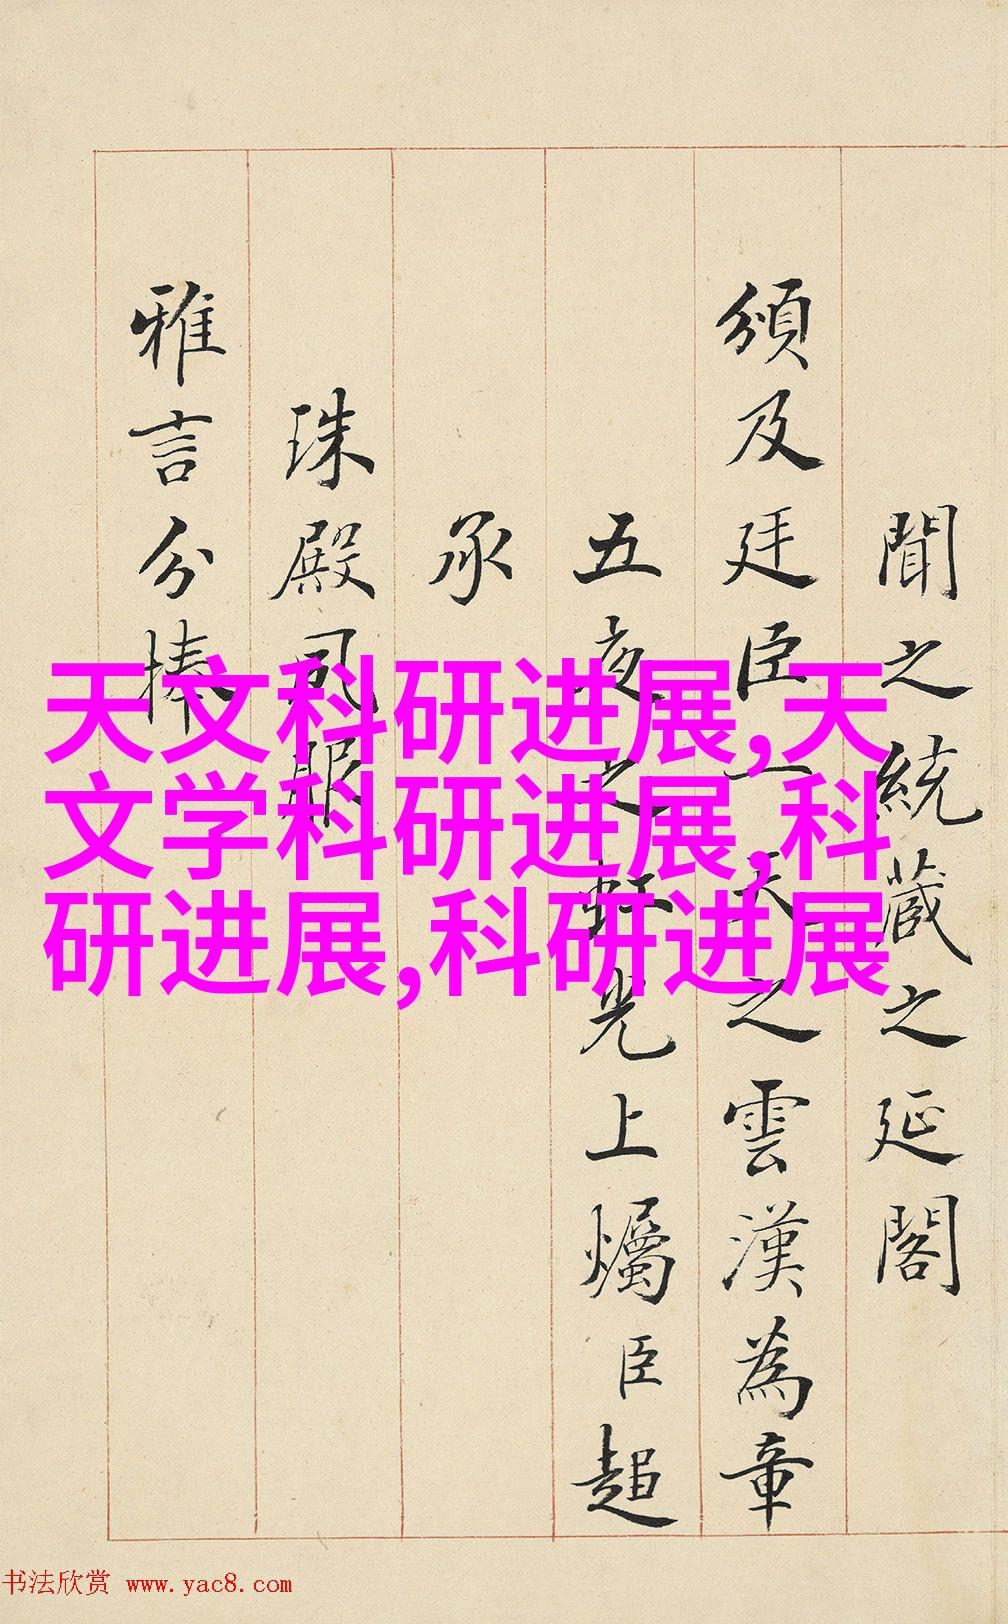 聞之統藏之延閣
頒及廷臣一天之雲漢為章
五夜之虹光上燭臣超
承
珠殿夙服
雅言分捧
天文科研进展,天
文学科研进展,科
研进展,科研进展
书法欣赏 www.yac8.com